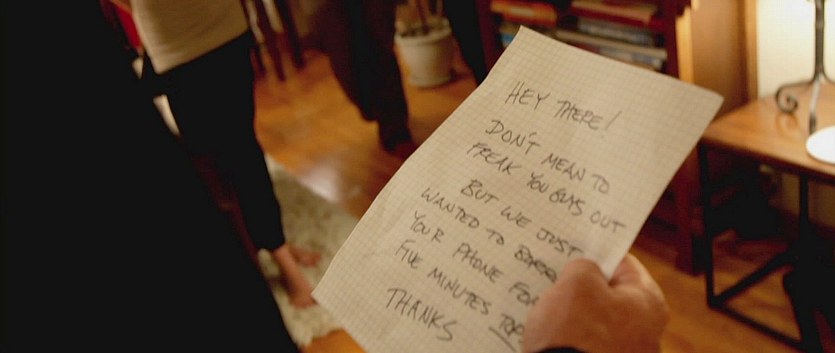 HEY THERE!
DON'T MEAN TO
FREAK YOU GUYS OUT
BUT WE JUST
WANTED TO
YOUR PHONE FOR
FIVE MINUTES TOP
THANKS